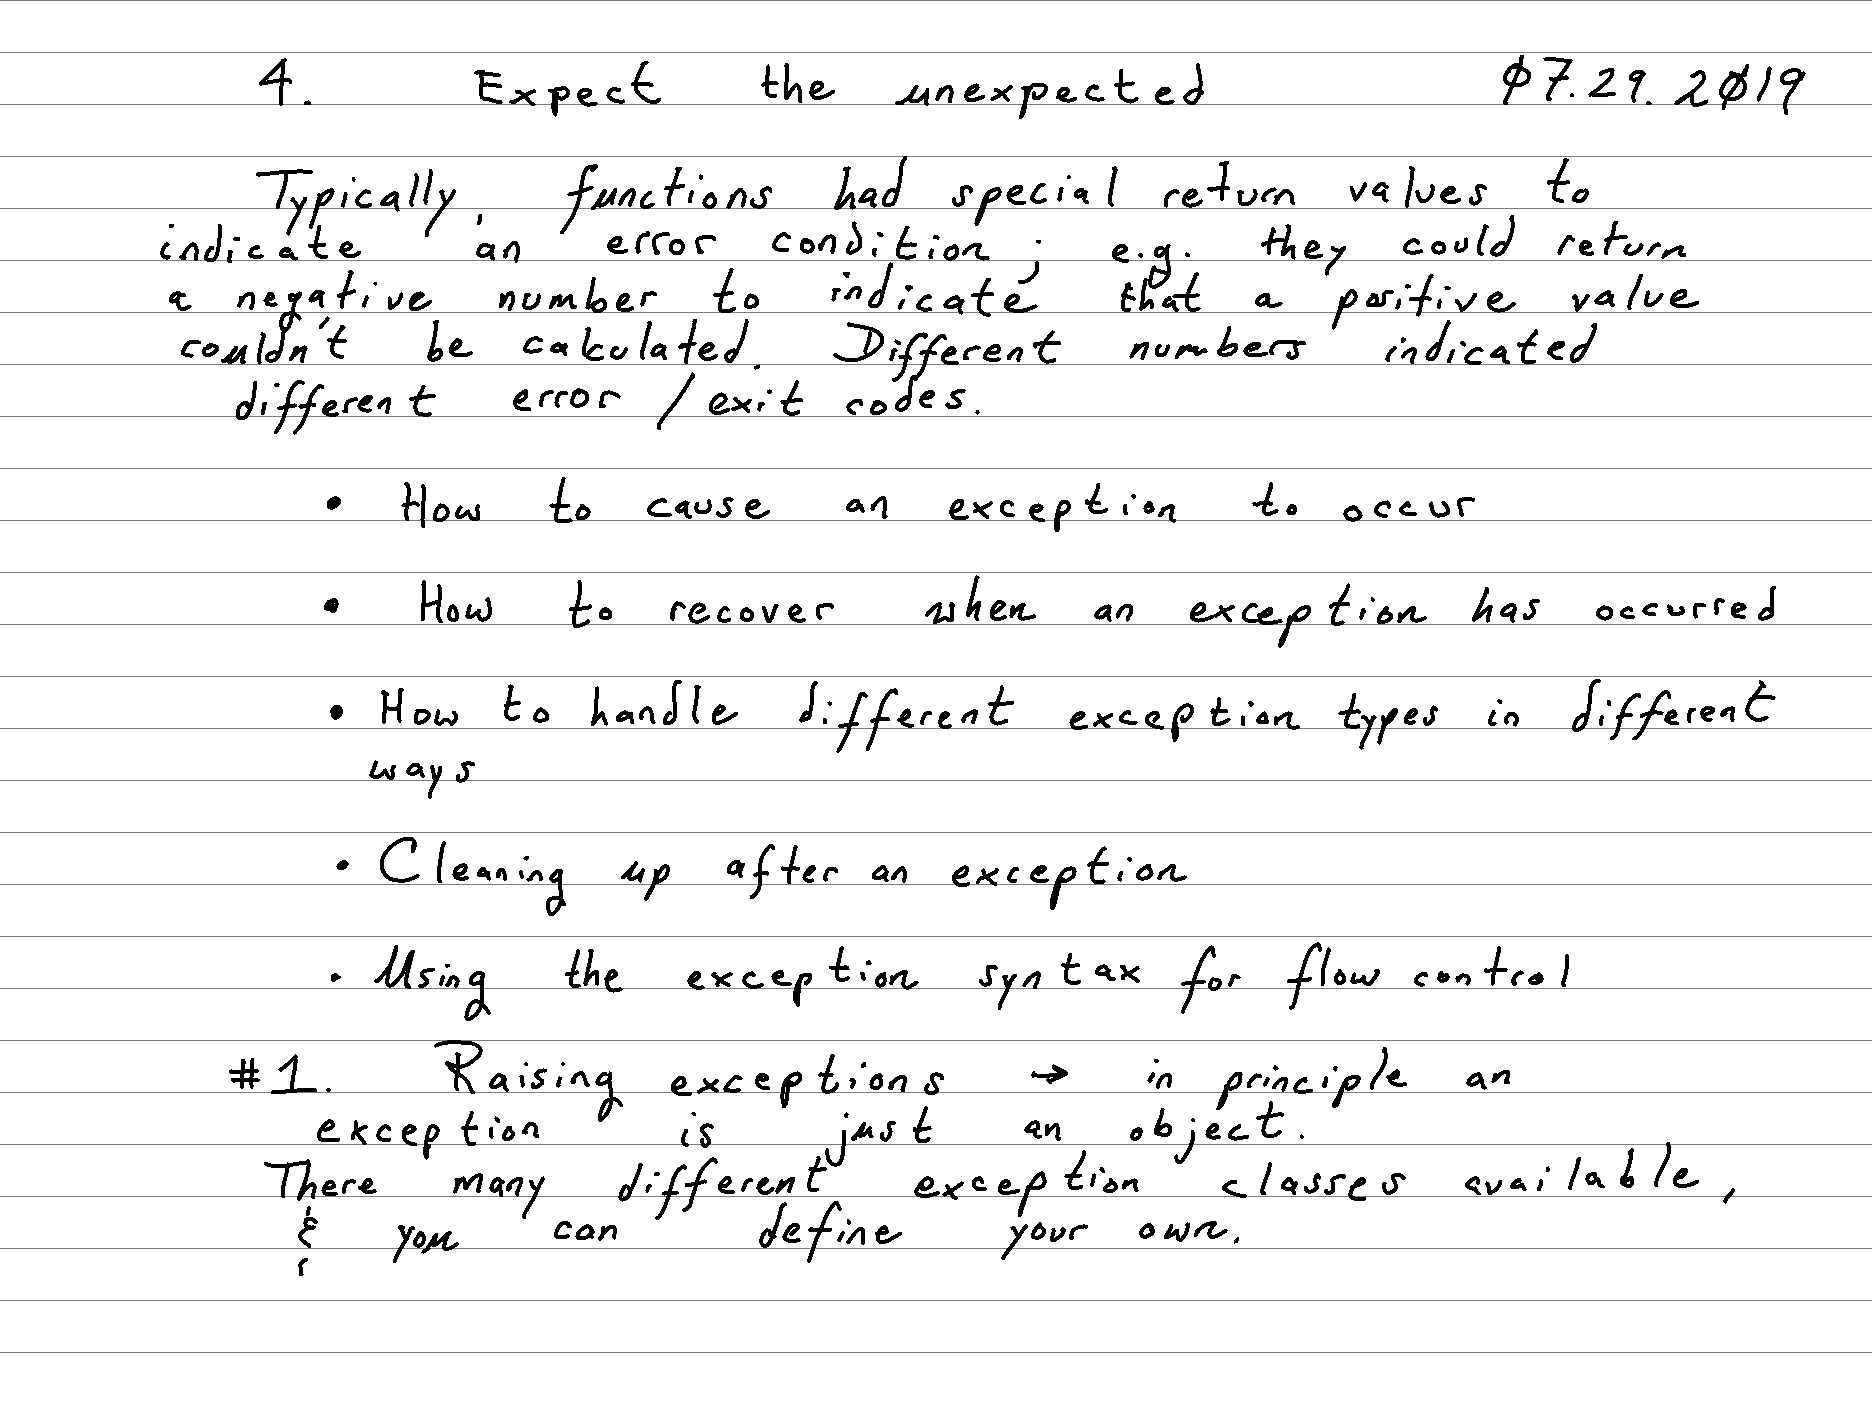 4. Expect the unexpected 07.29.2019
Typically, functions had special return values to
indicate an error condition; e.g. they could return
a negative number to indicate that a positive value
couldn't be calculated. Different numbers indicated
different error / exit codes.
• How to cause an exception to occur
• How to recover when an exception has occurred
• How to handle different exception types in different
ways
• Cleaning up after an exception
• Using the exception syntax for flow control
#1. Raising exceptions → in principle an
exception is just an object.
There many different exception classes available,
& you can define your own.